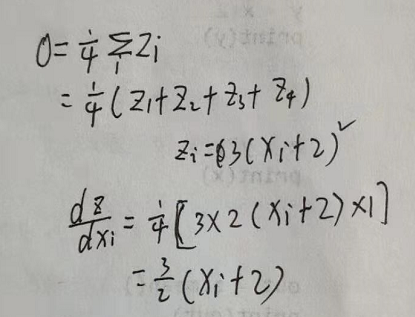 O = 1/4 Σ_i Z_i
= 1/4 (Z_1 + Z_2 + Z_3 + Z_4)
Z_i = 3(x_i+2)^2
dz/dx_i = 1/4 [3×2(x_i+2)×1]
= 3/2 (x_i+2)